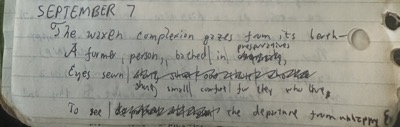 SEPTEMBER 7
The waxen complexion gazes from its berth—
A former, person, bathed in preservatives
Eyes sewn shut, small comfort for they who throng
To see the departure from